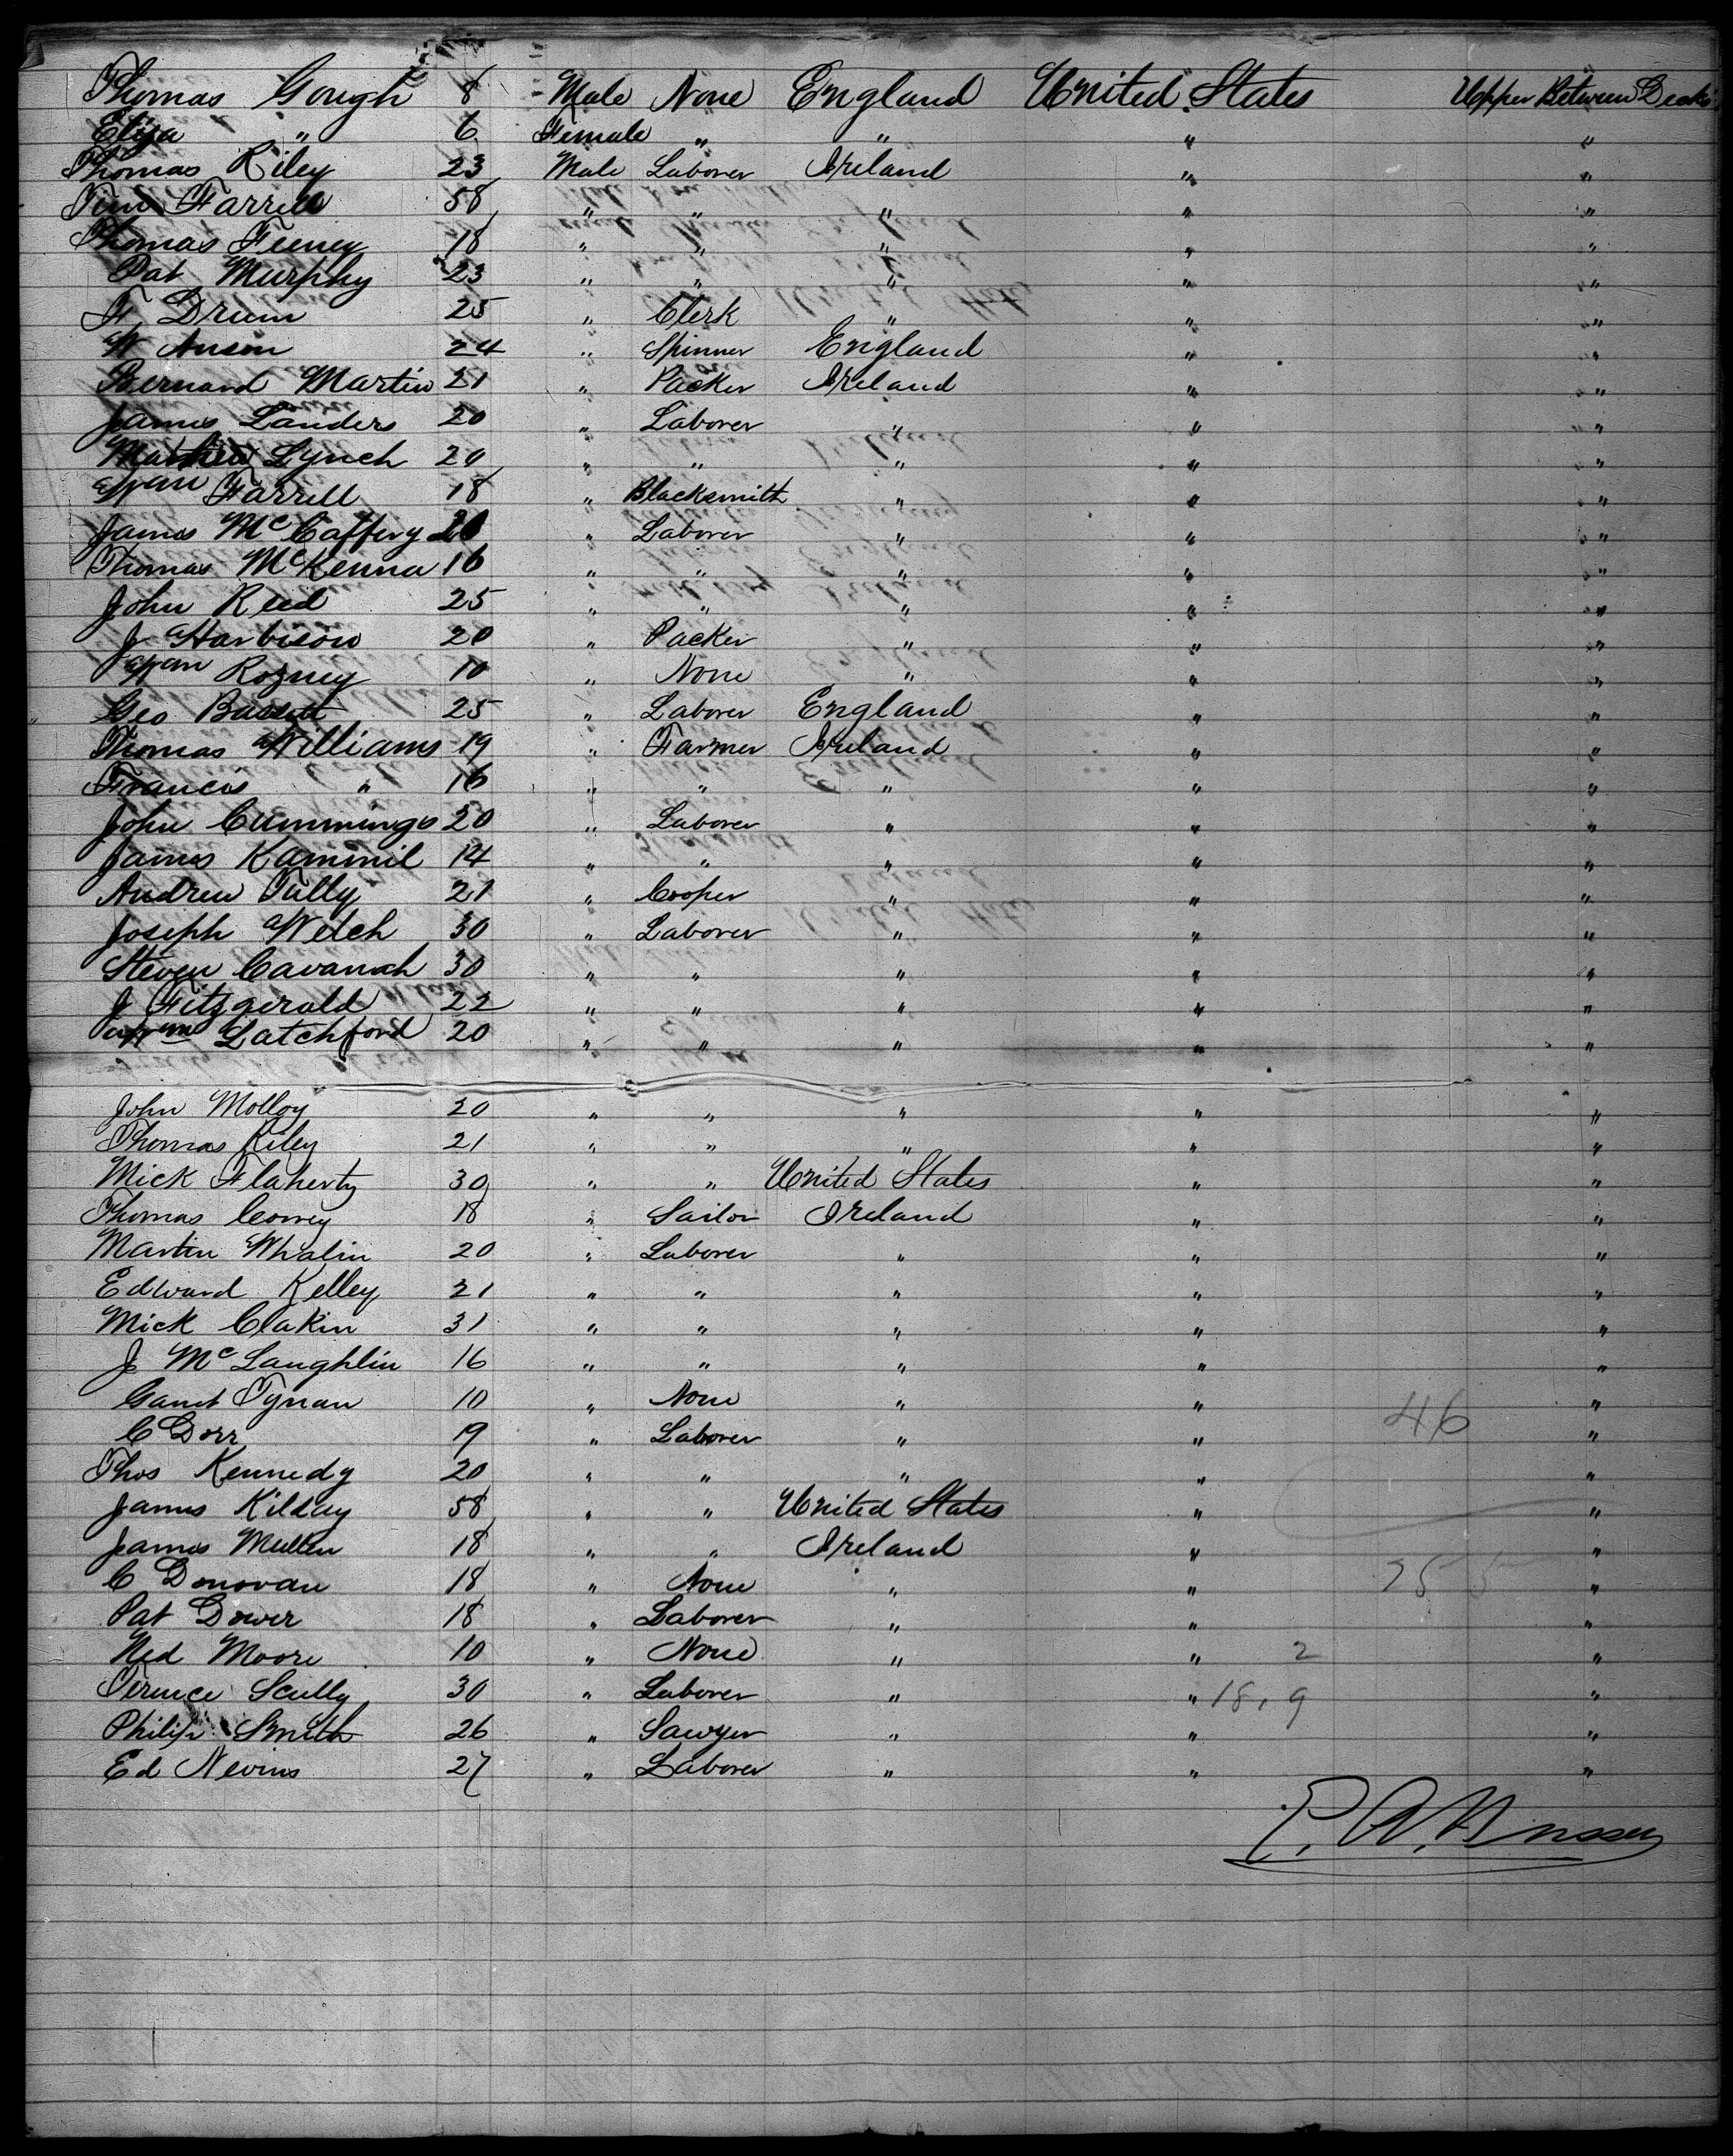 Thomas Gough 8 Male None England United States Upper Between Decks
Eliza " 6 Female " " " "
Thomas Riley 23 Male Laborer Ireland " "
Tim Farrell 58 " " " " "
Thomas Feeney 18 " " " " "
Pat Murphy 23 " " " " "
F Drum 25 " Clerk " " "
W Anson 24 " Spinner England " "
Bernard Martin 21 " Packer Ireland " "
James Landers 20 " Laborer " " "
Mathew Lynch 20 " " " " "
Wm Farrell 18 " Blacksmith " " "
James McCaffery 20 " Laborer " " "
Thomas McKenna 16 " " " " "
John Reed 25 " " " " "
J Harbison 20 " Packer " " "
Wm Rozney 10 " None " " "
Geo Bassett 25 " Laborer England " "
Thomas Williams 19 " Farmer Ireland " "
Francis " 16 " " " " "
John Cummings 20 " Laborer " " "
James Kammil 14 " " " " "
Andrew Tully 21 " Cooper " " "
Joseph Welch 30 " Laborer " " "
Steven Cavanah 30 " " " " "
J Fitzgerald 22 " " " " "
Wm Latchford 20 " " " " "
John Molloy 20 " " " " "
Thomas Riley 21 " " " " "
Mick Flaherty 30 " " United States " "
Thomas 18 " Sailor Ireland " "
Martin Whalin 20 " Laborer " " "
Edward Kelley 21 " " " " "
Mick Clakin 31 " " " " "
J McLaughlin 16 " " " " "
Tynan 10 " None " " "
46
C Dorr 19 " Laborer " " "
Thos Kennedy 20 " " " " "
James Kilday 58 " " United States " "
James Mullen 18 " " Ireland " "
C Donovan 18 " None " " "
Pat Dower 18 " Laborer " " "
Ned Moore 10 " None " " 2 "
Terence Scully 30 " Laborer " " 18, 9 "
Philip Smith 26 " Sawyer " " "
Ed Nevins 27 " Laborer " " "